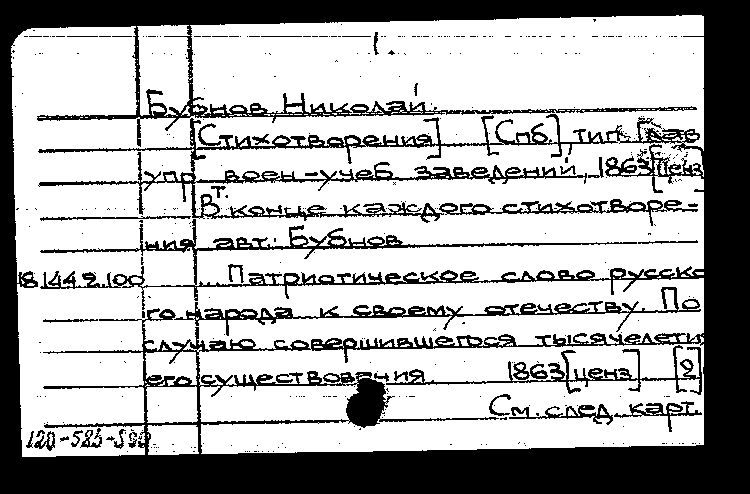 1.
Бубнов, Николай.
[Стихотворения] [Спб.], тип. Глав.
упр. воен-учеб. заведений, 1863 [ценз.
В т. конце каждого стихотворе-
ния авт.: Бубнов
18.144.2.100 ... Патриотическое слово русско
го народа к своему отечеству. По
случаю совершившегося тысячелетия
его существования. 1863 [ценз.] [2]
См. след. карт.